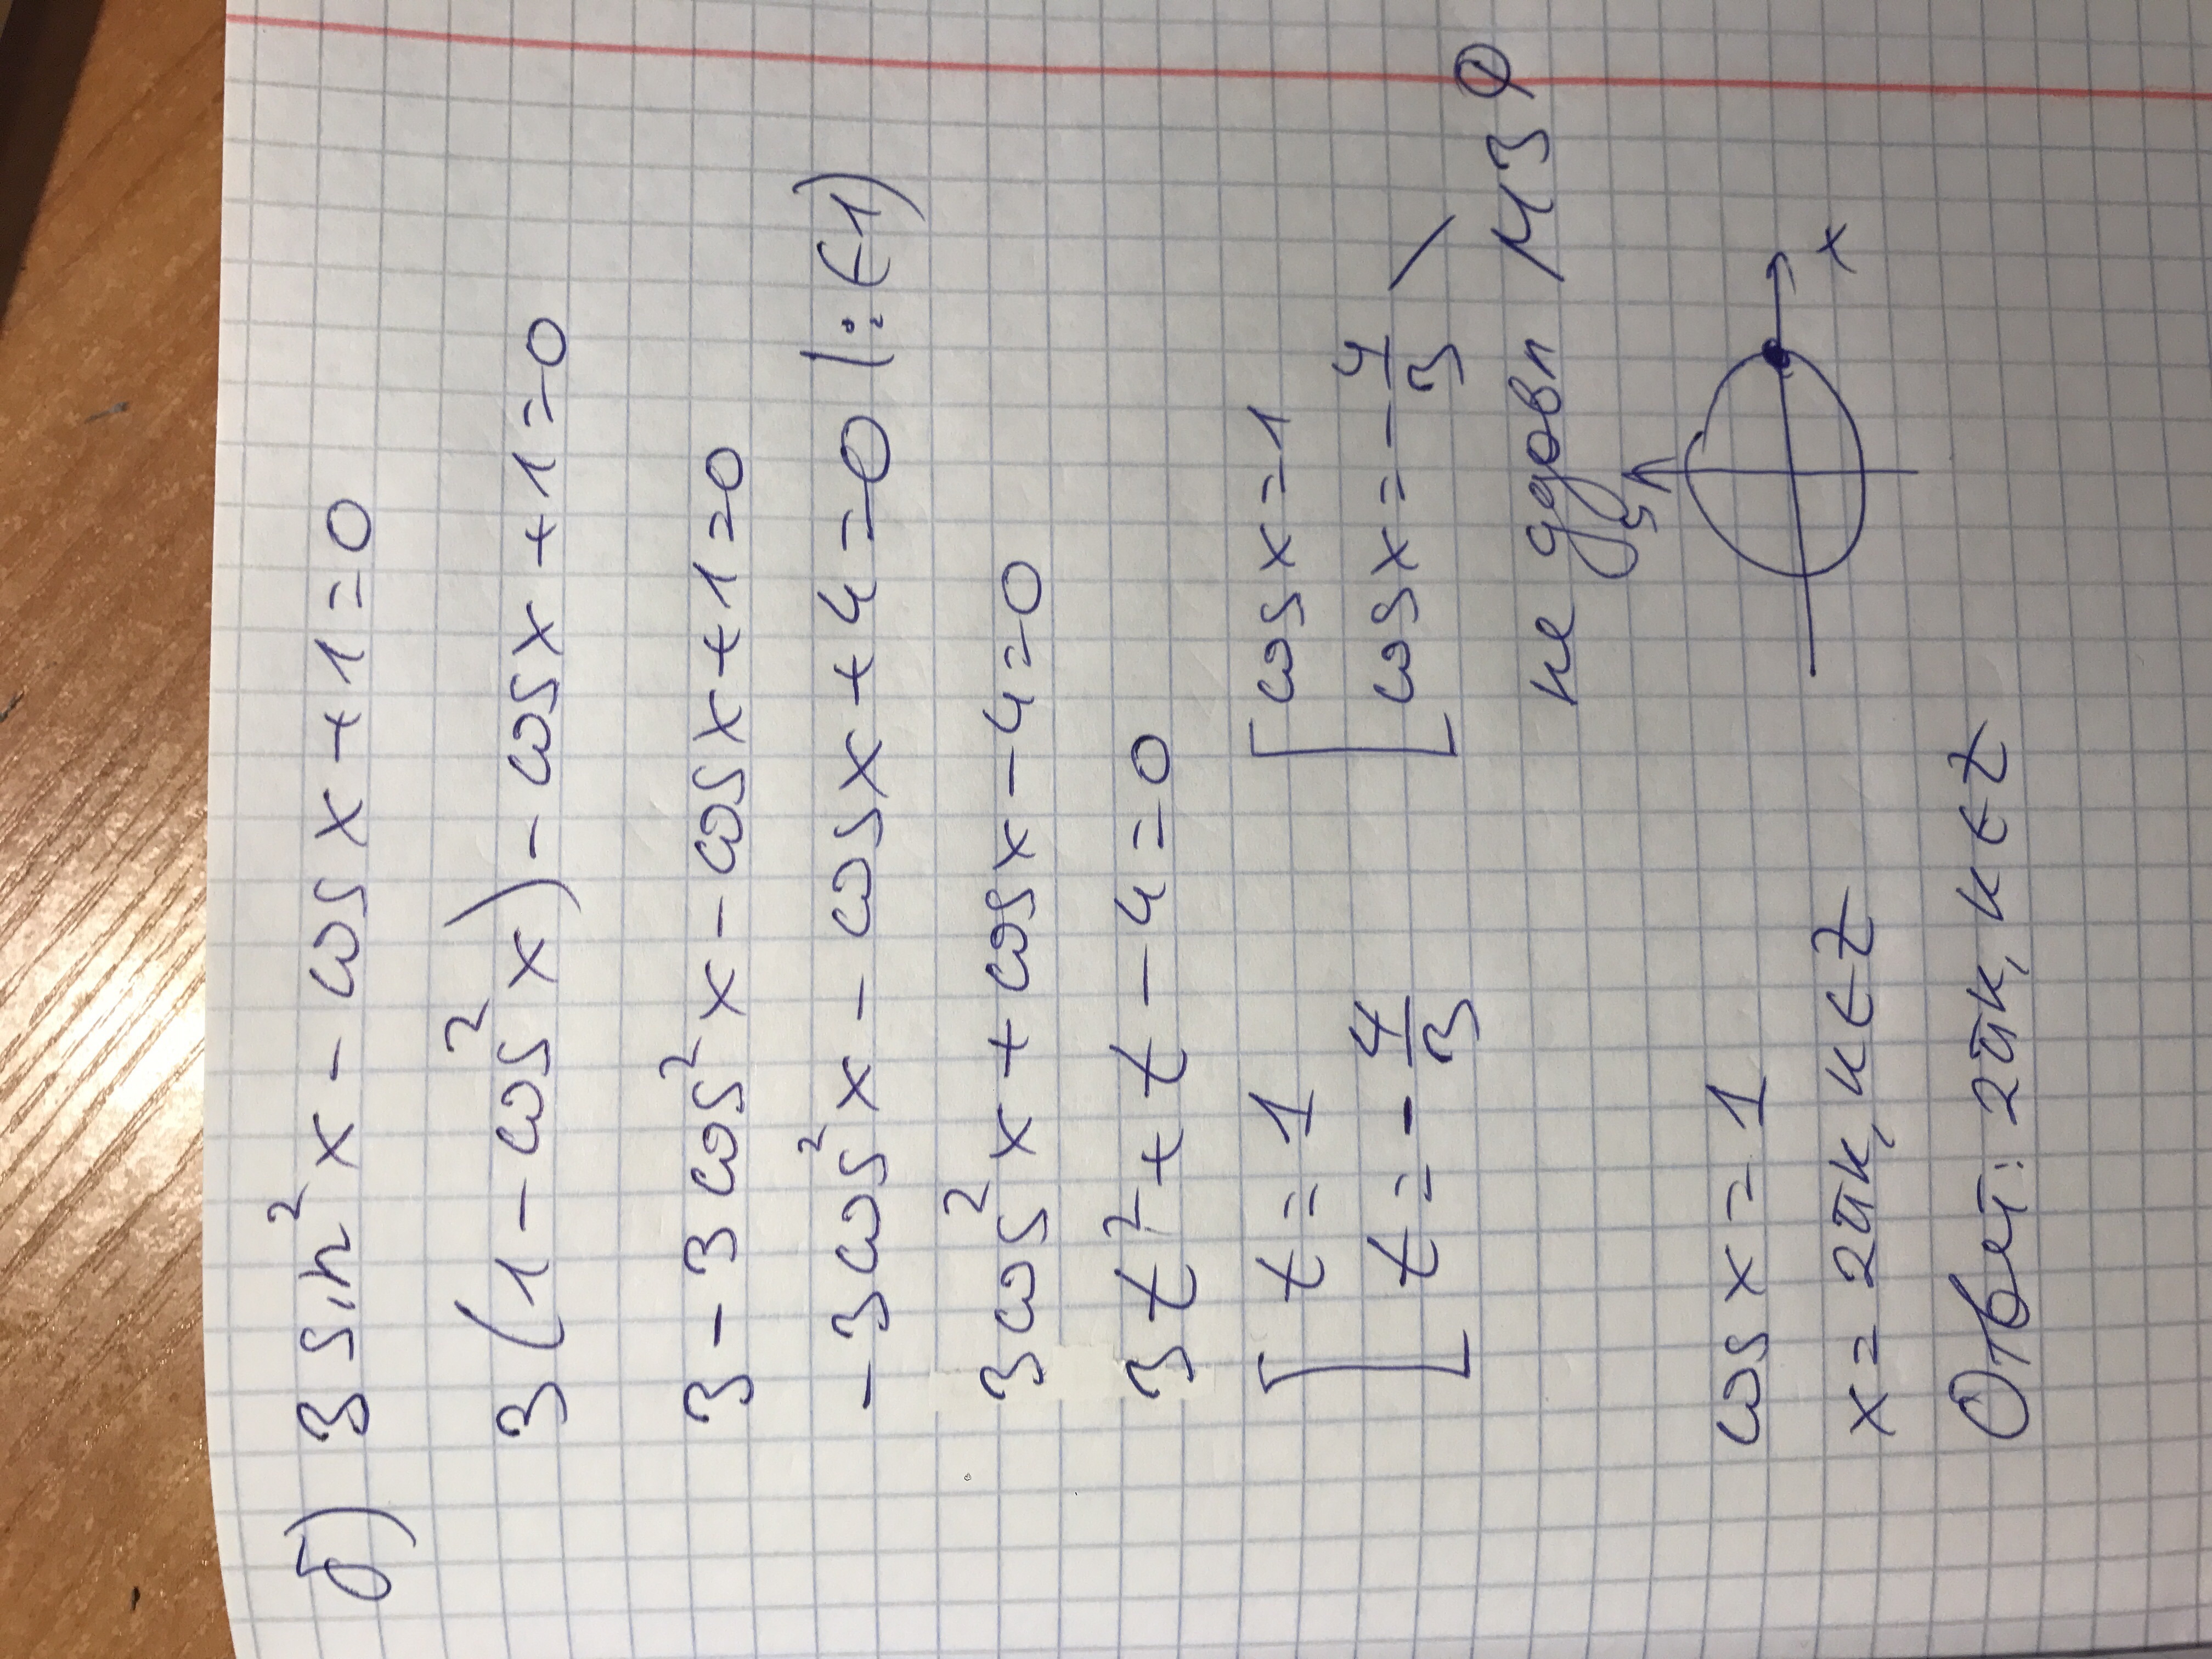 б) 3 sin²x - cos x + 1 = 0
3(1 - cos²x) - cos x + 1 = 0
3 - 3 cos²x - cos x + 1 = 0
-3 cos²x - cos x + 4 = 0 |:(-1)
3 cos²x + cos x - 4 = 0
3t² + t - 4 = 0
[ t = 1 [ cos x = 1
[ t = -4/3 [ cos x = -4/3
не удовл МЗФ
y
x
cos x = 1
x = 2πk, k ∈ Z
Ответ: 2πk, k ∈ Z